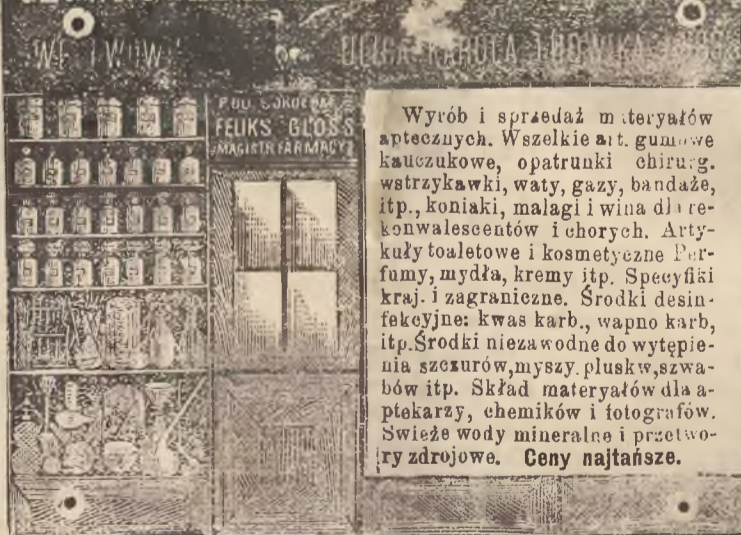 WE LWOWIE
ULICA KAROLA LUDWIKA
POD SOKOŁEM
FELIKS GLOSS
MAGISTR FARMACYI
Wyrób i sprzedaż materyałów
aptecznych. Wszelkie art. gumowe
kauczukowe, opatrunki chirurg.
wstrzykawki, waty, gazy, bandaże,
itp., koniaki, malagi i wina dla re-
konwalescentów i chorych. Arty-
kuły toaletowe i kosmetyczne Per-
fumy, mydła, kremy itp. Specyfiki
kraj. i zagraniczne. Środki desin-
fekcyjne: kwas karb., wapno karb,
itp. Środki niezawodne do wytępie-
nia szczurów, myszy. pluskw, szwa-
bów itp. Skład materyałów dla a-
ptekarzy, chemików i fotografów.
Swieże wody mineralne i przetwo-
ry zdrojowe. Ceny najtańsze.